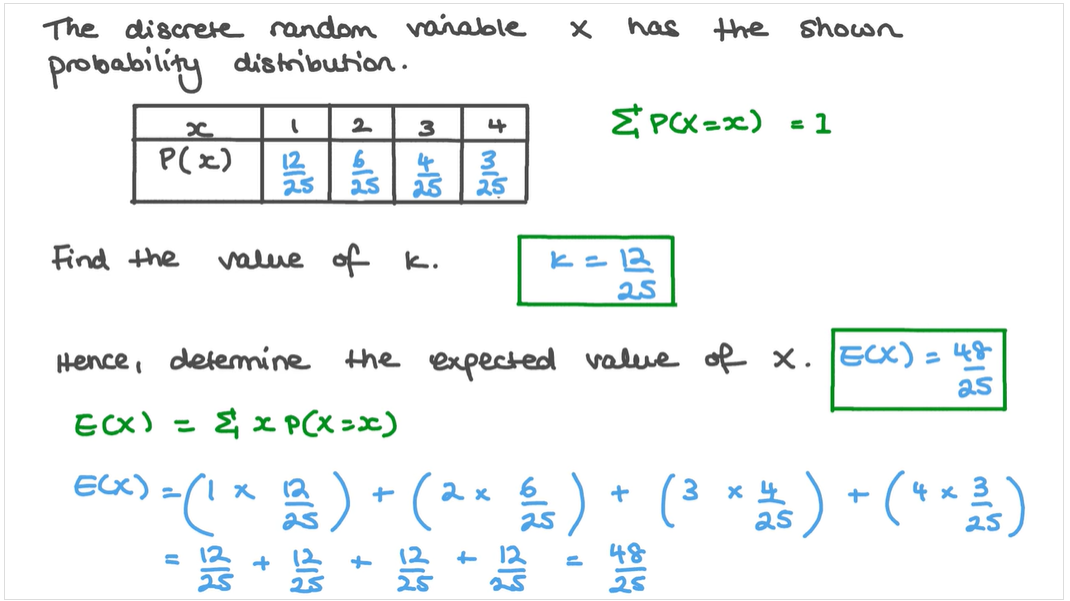 The discrete random variable X has the shown
probability distribution.
x 1 2 3 4
P(x) 12/25 6/25 4/25 3/25
Σ P(X=x) = 1
Find the value of k.
k = 12/25
Hence, determine the expected value of X.
E(X) = 48/25
E(X) = Σ x P(X=x)
E(X) = (1 × 12/25) + (2 × 6/25) + (3 × 4/25) + (4 × 3/25)
= 12/25 + 12/25 + 12/25 + 12/25 = 48/25